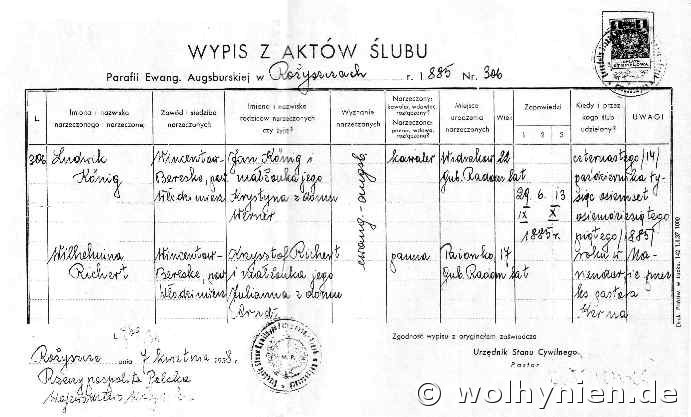 WYPIS Z AKTÓW ŚLUBU
Parafii Ewang. Augsburskiej w Rożyszczach r. 1885 Nr. 306
L.
Imiona i nazwiska narzeczonego - narzeczonej
Zawód i siedziba narzeczonych
Imiona i nazwiska rodziców narzeczonych czy żyją?
Wyznanie narzeczonych
Narzeczony: kawaler, wdowiec, rozłączony? Narzeczona: panna, wdowa, rozłączona?
Miejsce urodzenia narzeczonych
Wiek
Zapowiedzi
1 2 3
Kiedy i przez kogo ślub udzielony?
UWAGI
306
Ludwik
König
Wincentów-
Bereske, pow.
Włodzimierz
Jan König i
małżonka jego
Krystyna z domu
Werner
ewang-augsb.
kawaler
Gub. Radom
22
lat
29. 6. 13
IX X X
1885 r.
czternastego /14/
października ty-
siąc osiemset
osiemdziesiątego
piątego /1885/
roku w
przez
ks. pastora
Wilhelmina
Richert
Wincentów-
Bereske, pow.
Włodzimierz
Krzysztof Richert
i małżonka jego
Julianna z domu
panna
Gub. Radom
17
lat
Rożyszcze dnia 7 kwietnia 1938 r.
Rzeczypospolita Polska
M.P.
Zgodność wypisu z oryginałem zaświadcza
Urzędnik Stanu Cywilnego.
Pastor
© wolhynien.de